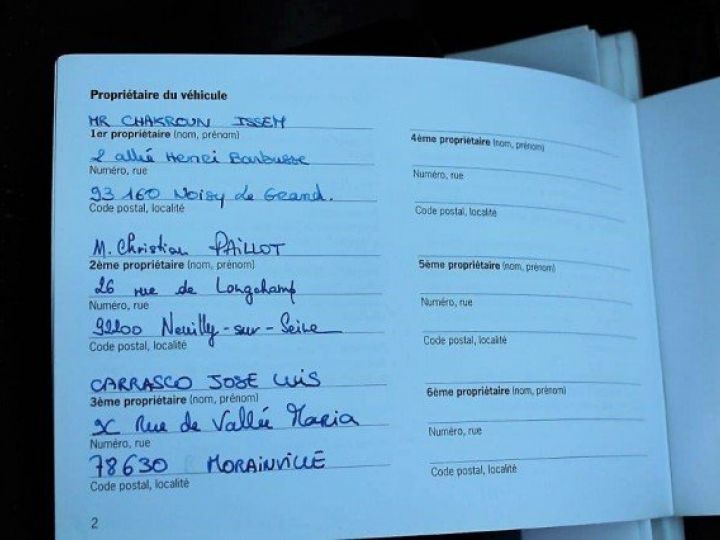 Propriétaire du véhicule
MR CHAKROUN ISSEM
1er propriétaire (nom, prénom)
2 allée Henri Barbusse
Numéro, rue
93 160 Noisy Le Grand.
Code postal, localité
M. Christian PAILLOT
2ème propriétaire (nom, prénom)
26 rue de Longchamp
Numéro, rue
92200 Neuilly-sur-Seine
Code postal, localité
CARRASCO JOSE LUIS
3ème propriétaire (nom, prénom)
Rue de Vallée Maria
Numéro, rue
78630 MORAINVILLE
Code postal, localité
2
4ème propriétaire (nom, prénom)
Numéro, rue
Code postal, localité
5ème propriétaire (nom, prénom)
Numéro, rue
Code postal, localité
6ème propriétaire (nom, prénom)
Numéro, rue
Code postal, localité